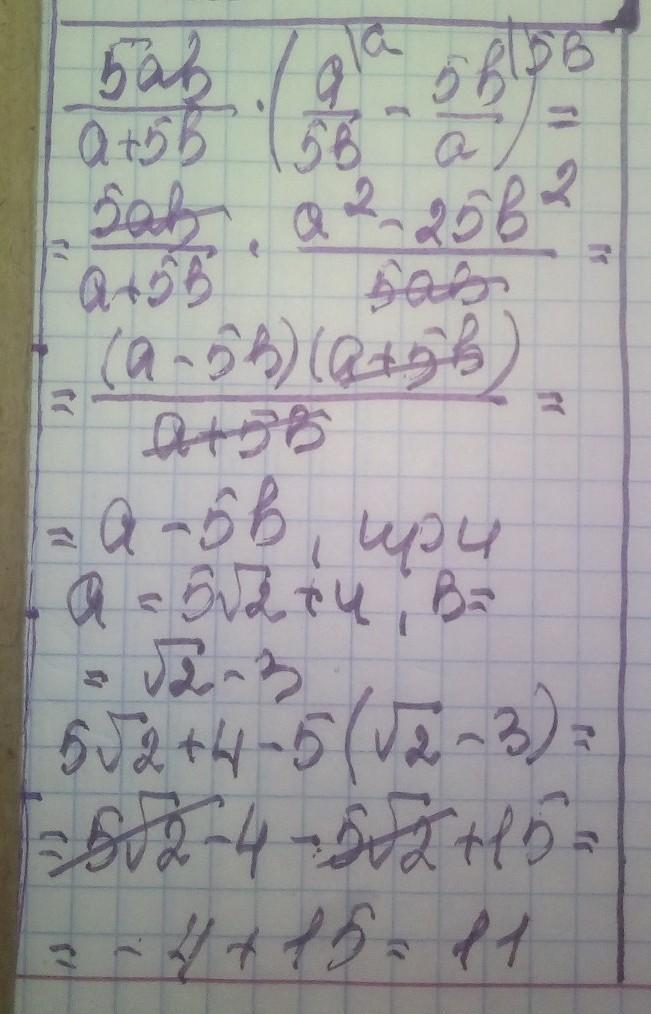 5ab/(a+5b) · (a/5b \a - 5b/a \5b) =
= 5ab/(a+5b) · (a² - 25b²)/5ab =
= (a - 5b)(a+5b)/(a+5b) =
= a - 5b, при
a = 5√2+4, b =
= √2 - 3
5√2+4-5(√2-3) =
= 5√2-4-5√2+15 =
= -4+15 = 11